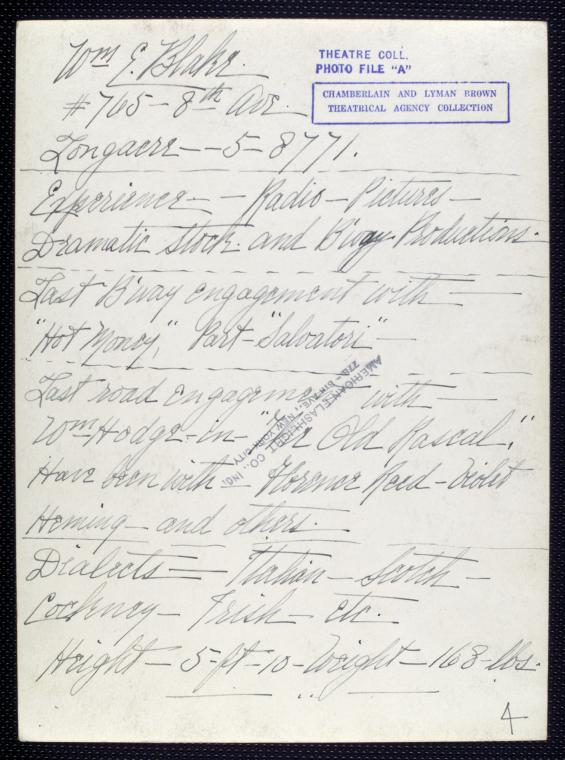 Wm E. Blake.
THEATRE COLL.
PHOTO FILE "A"
CHAMBERLAIN AND LYMAN BROWN
THEATRICAL AGENCY COLLECTION
#765-8th Ave.
Longacre--5-8771.
Experience--Radio-Pictures-
Dramatic Stock. and B'way Productions.
Last B'way engagement with
"Hot Money," Part-"Salvatori"-
Last road engagement with
Wm Hodge-in "The Old Rascal."
Have been with-Florence Reed-Violet
Heming-and others.
AMERICAN FLASHLIGHT CO., INC.
NEW YORK CITY
Dialects-Italian-Scotch-
Cockney-Irish-etc.
Height-5-ft-10-Weight-168-lbs.
4